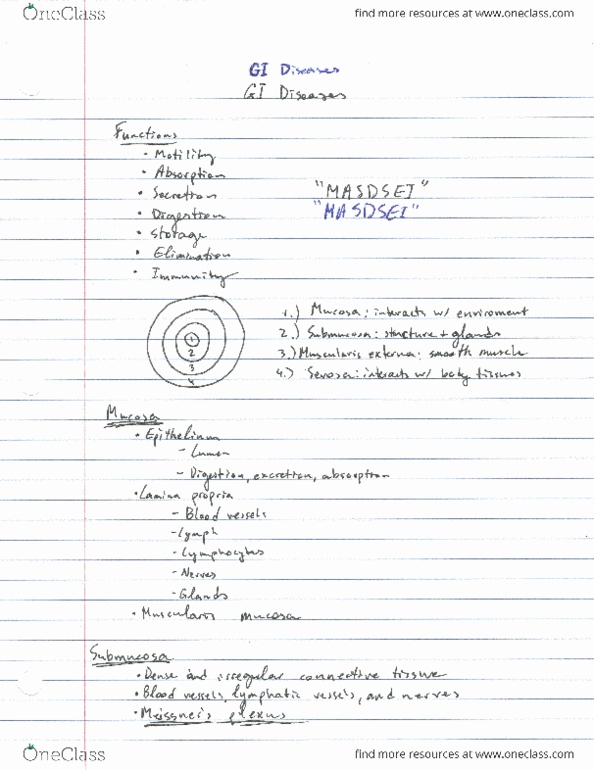 OneClass find more resources at www.oneclass.com
GI Diseases
GI Diseases
Functions
• Motility
• Absorption
• Secretion
• Digestion
• Storage
• Elimination
• Immunity
"MASDSEI"
"MASDSEI"
1
2
3
4
1.) Mucosa: interacts w/ enviroment
2.) Submucosa: structure + glands
3.) Muscularis externa: smooth muscle
4.) Serosa: interacts w/ body tissues
Mucosa
• Epithelium
- Lumen
- Digestion, excretion, absorption
• Lamina propria
- Blood vessels
- Lymph
- Lymphocytes
- Nerves
- Glands
• Muscularis mucosa
Submucosa
• Dense and irregular connective tissue
• Blood vessels, lymphatic vessels, and nerves
• Meissner's plexus
OneClass find more resources at www.oneclass.com